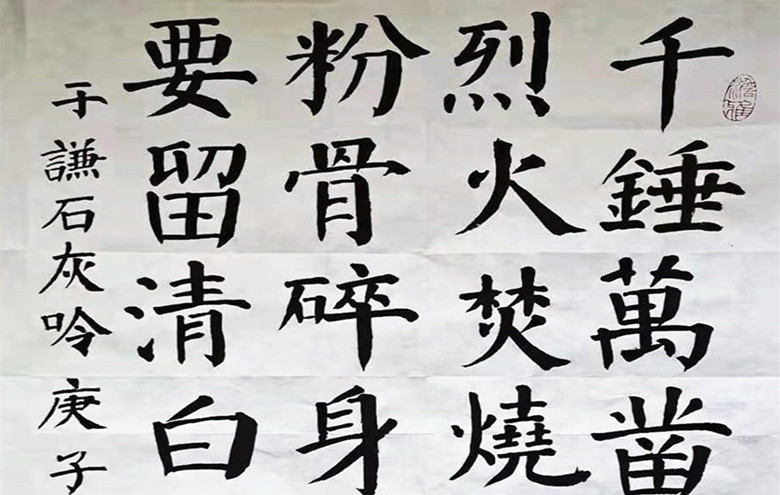 千錘萬凿
烈火焚燒
粉骨碎身
要留清白
于謙石灰吟庚子